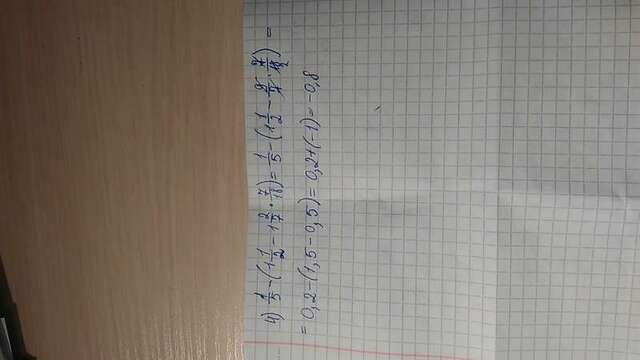 4) 1/5 - (1 1/2 - 1 2/7 · 7/18) = 1/5 - (1 1/2 - 9/7 · 7/18 2) =
= 0,2 - (1,5 - 0,5) = 0,2 + (-1) = -0,8